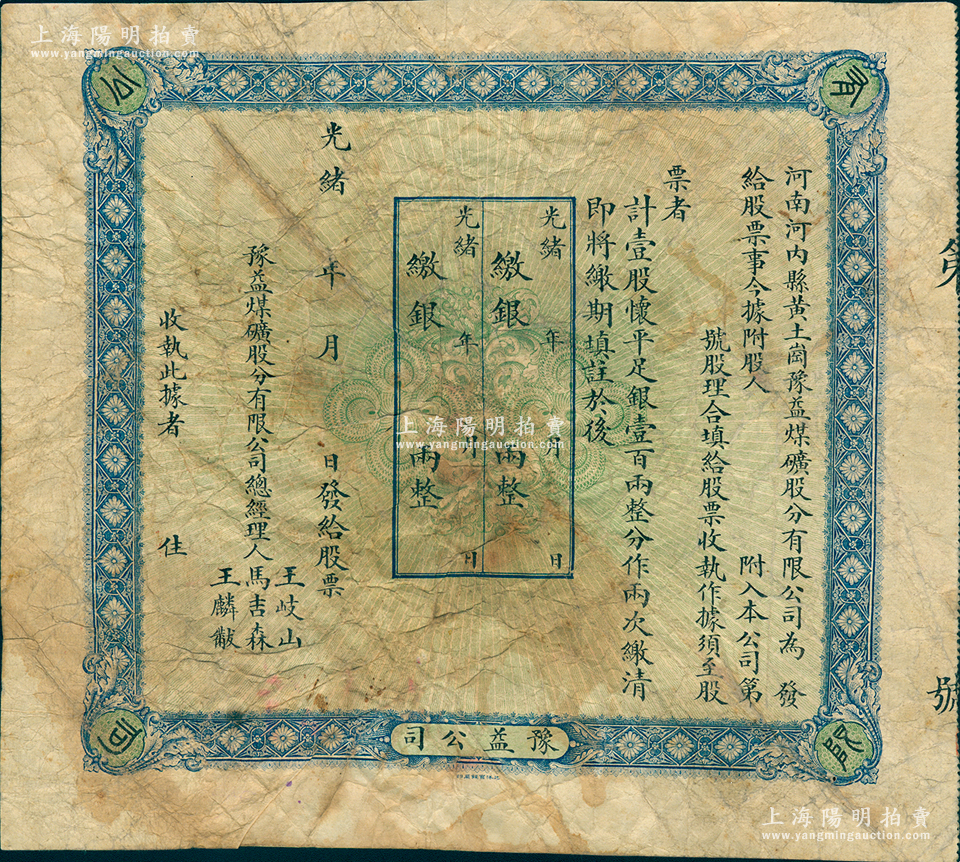 上海陽明拍賣
www.yangmingauction.com
上海陽明拍賣
www.yangmingauction.com
有
限
公
司
河南河内縣黃土崗豫益煤礦股分有限公司為 發
給股票事今據附股人 附入本公司第
號股理合填給股票收執作據須至股
票者
計壹股懷平足銀壹百兩整分作兩次繳清
即將繳期填註於後
光緒 年 月 日
繳銀 兩整
光緒 年 月 日
繳銀 兩整
光緒 年 月 日發給股票
豫益煤礦股分有限公司總經理人
王岐山
馬吉森
王麟黻
收執此據者 住
豫益公司
第
號
上海陽明拍賣
www.yangmingauction.com
上海陽明拍賣
www.yangmingauction.com